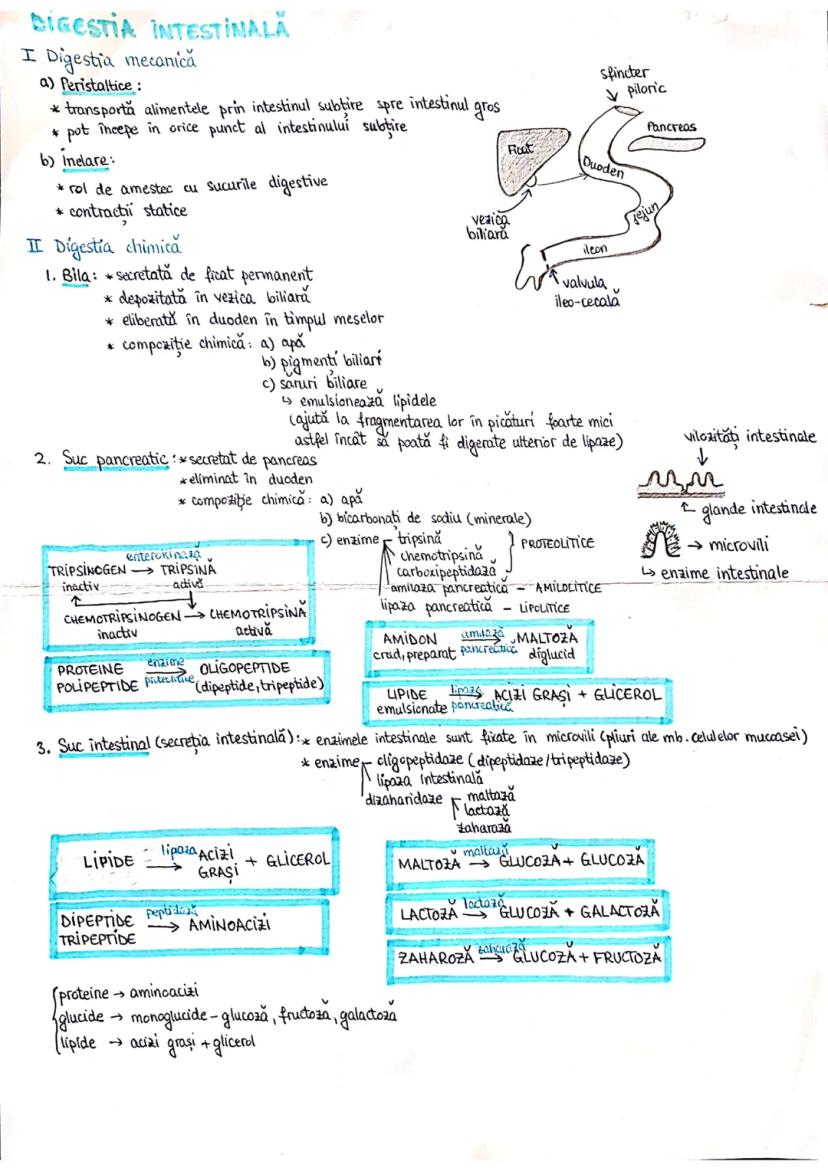 DIGESTIA INTESTINALĂ
I Digestia mecanică
a) Peristaltice :
* transportă alimentele prin intestinul subțire spre intestinul gros
* pot începe în orice punct al intestinului subțire
b) Inelare:
* rol de amestec cu sucurile digestive
* contracții statice
sfincter
piloric
Pancreas
Ficat
Duoden
jejun
vezica
biliară
ileon
valvula
ileo-cecală
II Digestia chimică
1. Bila: * secretată de ficat permanent
* depozitată în vezica biliară
* eliberată în duoden în timpul meselor
* compoziție chimică: a) apă
b) pigmenți biliari
c) săruri biliare
↳ emulsionează lipidele
(ajută la fragmentarea lor în picături foarte mici
astfel încât să poată fi digerate ulterior de lipaze)
vilozități intestinale
glande intestinale
→ microvili
↳ enzime intestinale
2. Suc pancreatic : * secretat de pancreas
* eliminat în duoden
* compoziție chimică: a) apă
b) bicarbonați de sodiu (minerale)
c) enzime tripsină
chemotripsină
carboxipeptidază
PROTEOLITICE
amilaza pancreatică - AMILOLITICE
lipaza pancreatică - LIPOLITICE
enterokinază
TRIPSINOGEN → TRIPSINĂ
inactiv activă
CHEMOTRIPSINOGEN → CHEMOTRIPSINĂ
inactiv activă
PROTEINE enzime → OLIGOPEPTIDE
POLIPEPTIDE proteolitice (dipeptide, tripeptide)
AMIDON amilază → MALTOZĂ
crud, preparat pancreatică diglucid
LIPIDE lipază → ACIZI GRAȘI + GLICEROL
emulsionate pancreatică
3. Suc intestinal (secreția intestinală): * enzimele intestinale sunt fixate în microvili (pliuri ale mb. celulelor mucoasei)
* enzime oligopeptidaze (dipeptidaze/tripeptidaze)
lipaza intestinală
dizaharidaze maltază
lactază
zaharază
LIPIDE lipaza → ACIZI
GRAȘI + GLICEROL
DIPEPTIDE peptidază → AMINOACIZI
TRIPEPTIDE
MALTOZĂ maltază → GLUCOZĂ + GLUCOZĂ
LACTOZĂ lactază → GLUCOZĂ + GALACTOZĂ
ZAHAROZĂ zaharază → GLUCOZĂ + FRUCTOZĂ
proteine → aminoacizi
glucide → monoglucide - glucoză, fructoză, galactoză
lipide → acizi grași + glicerol